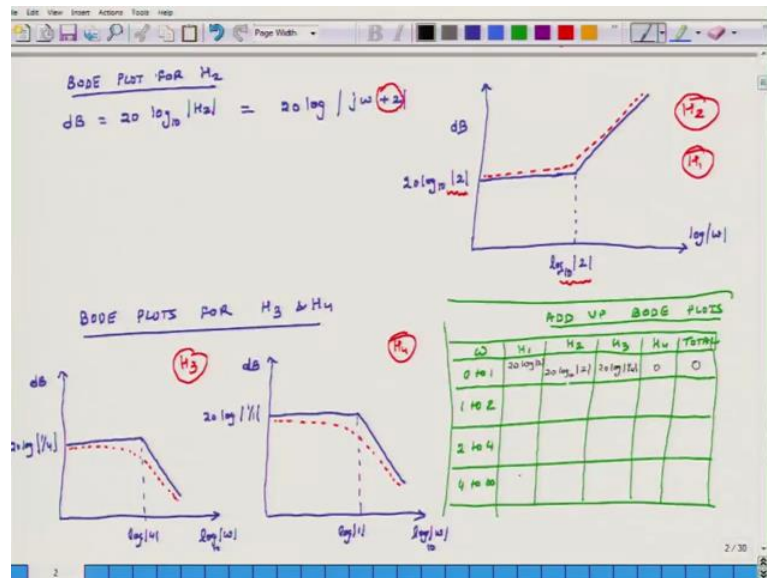 Edit View Insert Actions Tools Help
Page Width
B I
BODE PLOT FOR H2
dB = 20 log10 |H2| = 20 log | jω + 2|
dB
20 log10 |2|
log10 |2|
log|ω|
H2
H1
BODE PLOTS FOR H3 & H4
H3
dB
20 log |1/4|
log|4|
log10|ω|
H4
dB
20 log |1/1|
log|1|
log10|ω|
ADD UP BODE PLOTS
ω H1 H2 H3 H4 TOTAL
0 to 1 20 log10 |2| 0 0
1 to 2
2 to 4
4 to ∞
2 / 30
2